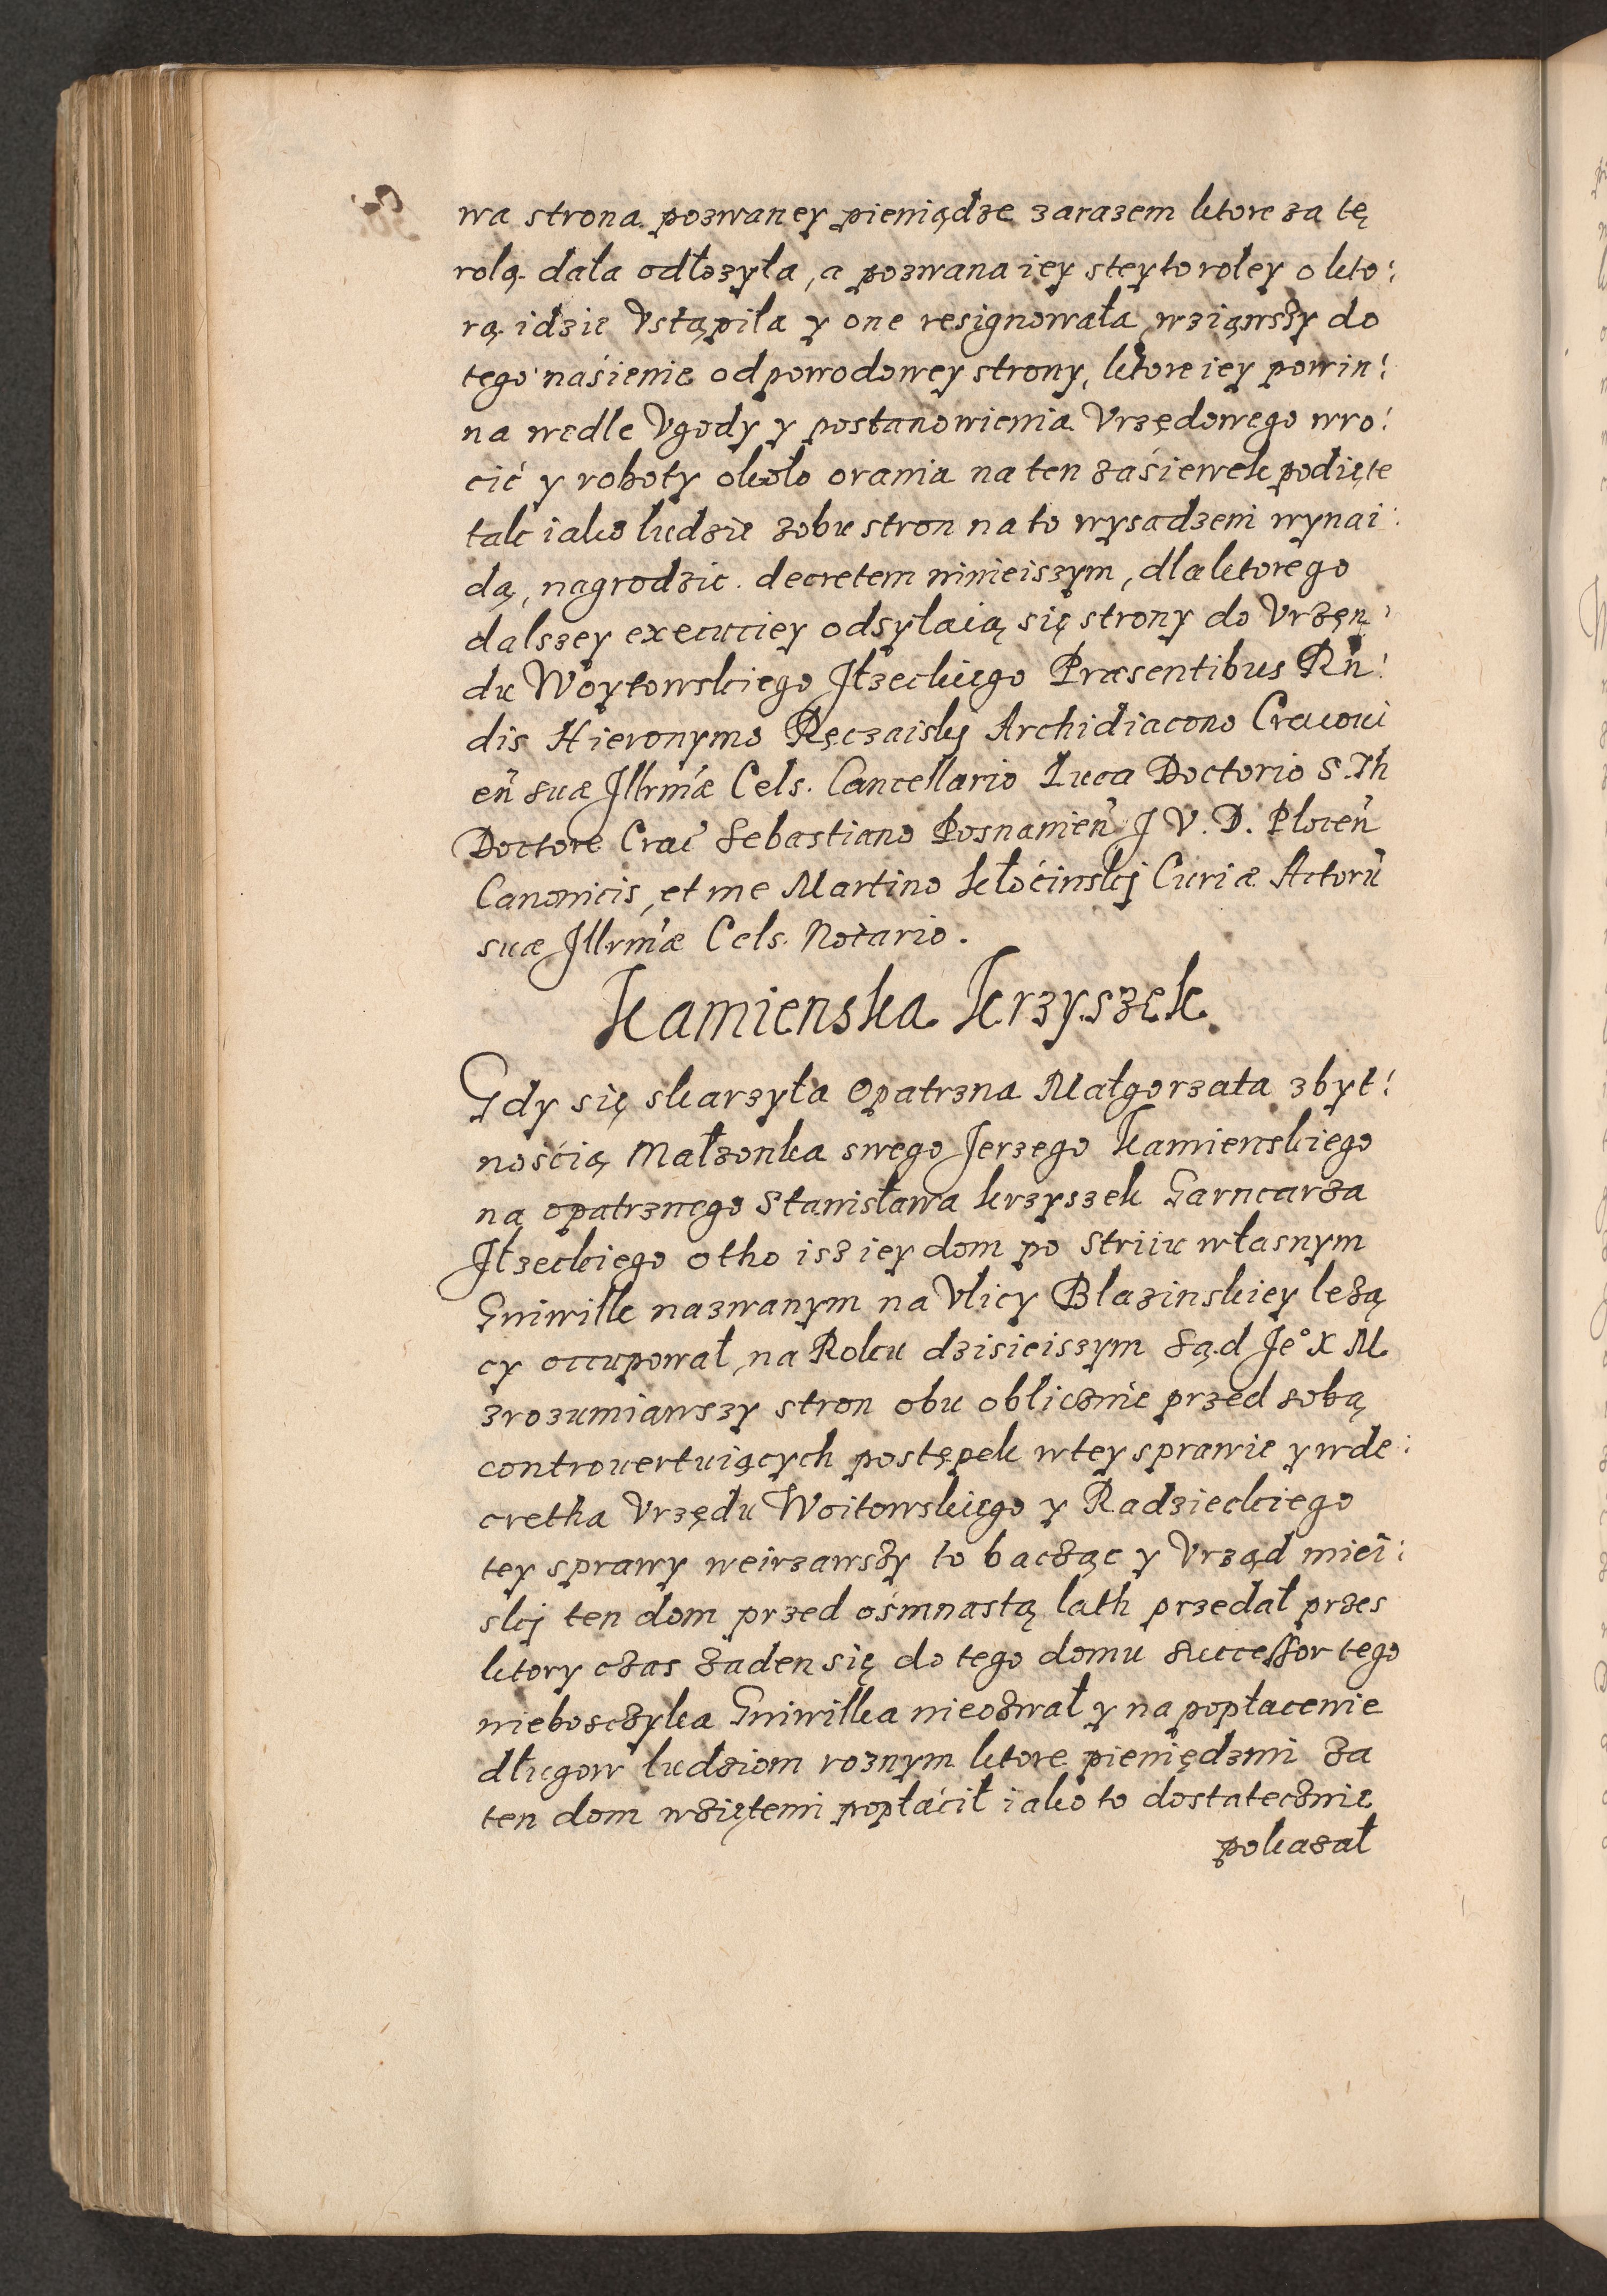 wa strona pozwaney pieniądze zarazem ktore za tę
rolą dała odłozyła, a pozwana iey steytoroley o kto:
rą idzie Vstąpiła y one resignowała, wziąwszy do
tego naśienie odpowodowey strony, ktore iey powin:
na wedle Vgody y postanowienia Vrzędowego wro:
cić y roboty około orania na ten zaśiewek podięte
tak iako ludzie zobu stron na to wysadzeni wynai:
dą, nagrodzic. decretem ninieiszym, dla ktorego
dalszey executiey odsyłaią się strony do Vrzęn:
du Woytowskiego Jłzeckiego Præsentibus Rñ:
dis Hieronymo Ręczaiskj Archidiacono Cracoui
eñ suæ Jllrmæ Cels. Cancellario Luca Doctorio S. Th
Doctore Crac Sebastiano Posnamień J V. D. Płoceñ
Canonicis, et me Martino Kłoćinskj Curiæ Actorũ
suæ Jllrmæ Cels. Notario.
Kamienska Krzyszek
Gdy się skarzyła Opatrzna Małgorzata zbyt:
nośćią Małzonka swego Jerzego Kamienskiego
na opatrznego Stanisława Krzyszek Garncarza
Jłzeckiego otho isz iey dom po Striiu własnym
Gniwilk nazwanym na Vlicy Blazinskiey leżą
cy occupował, na Roku dzisieiszym Sąd Je° X M.
zrozumiawszy stron obu oblicznie przed sobą
controuertuiących postępek wtey sprawie y wde:
cretha Vrzędu Woitowskiego y Radzieckiego
tey sprawy weirzawszy to bacząc yż Vrząd miei:
skj ten dom przed ośmnastą lath przedał przes
ktory czas żaden się do tego domu successor tego
nieboszczyka Gniwilka nieozwał y na popłacenie
długow ludziom roznym ktore pieniędzmi za
ten dom wziętemi popłácił iako to dostatecznie
pokazał